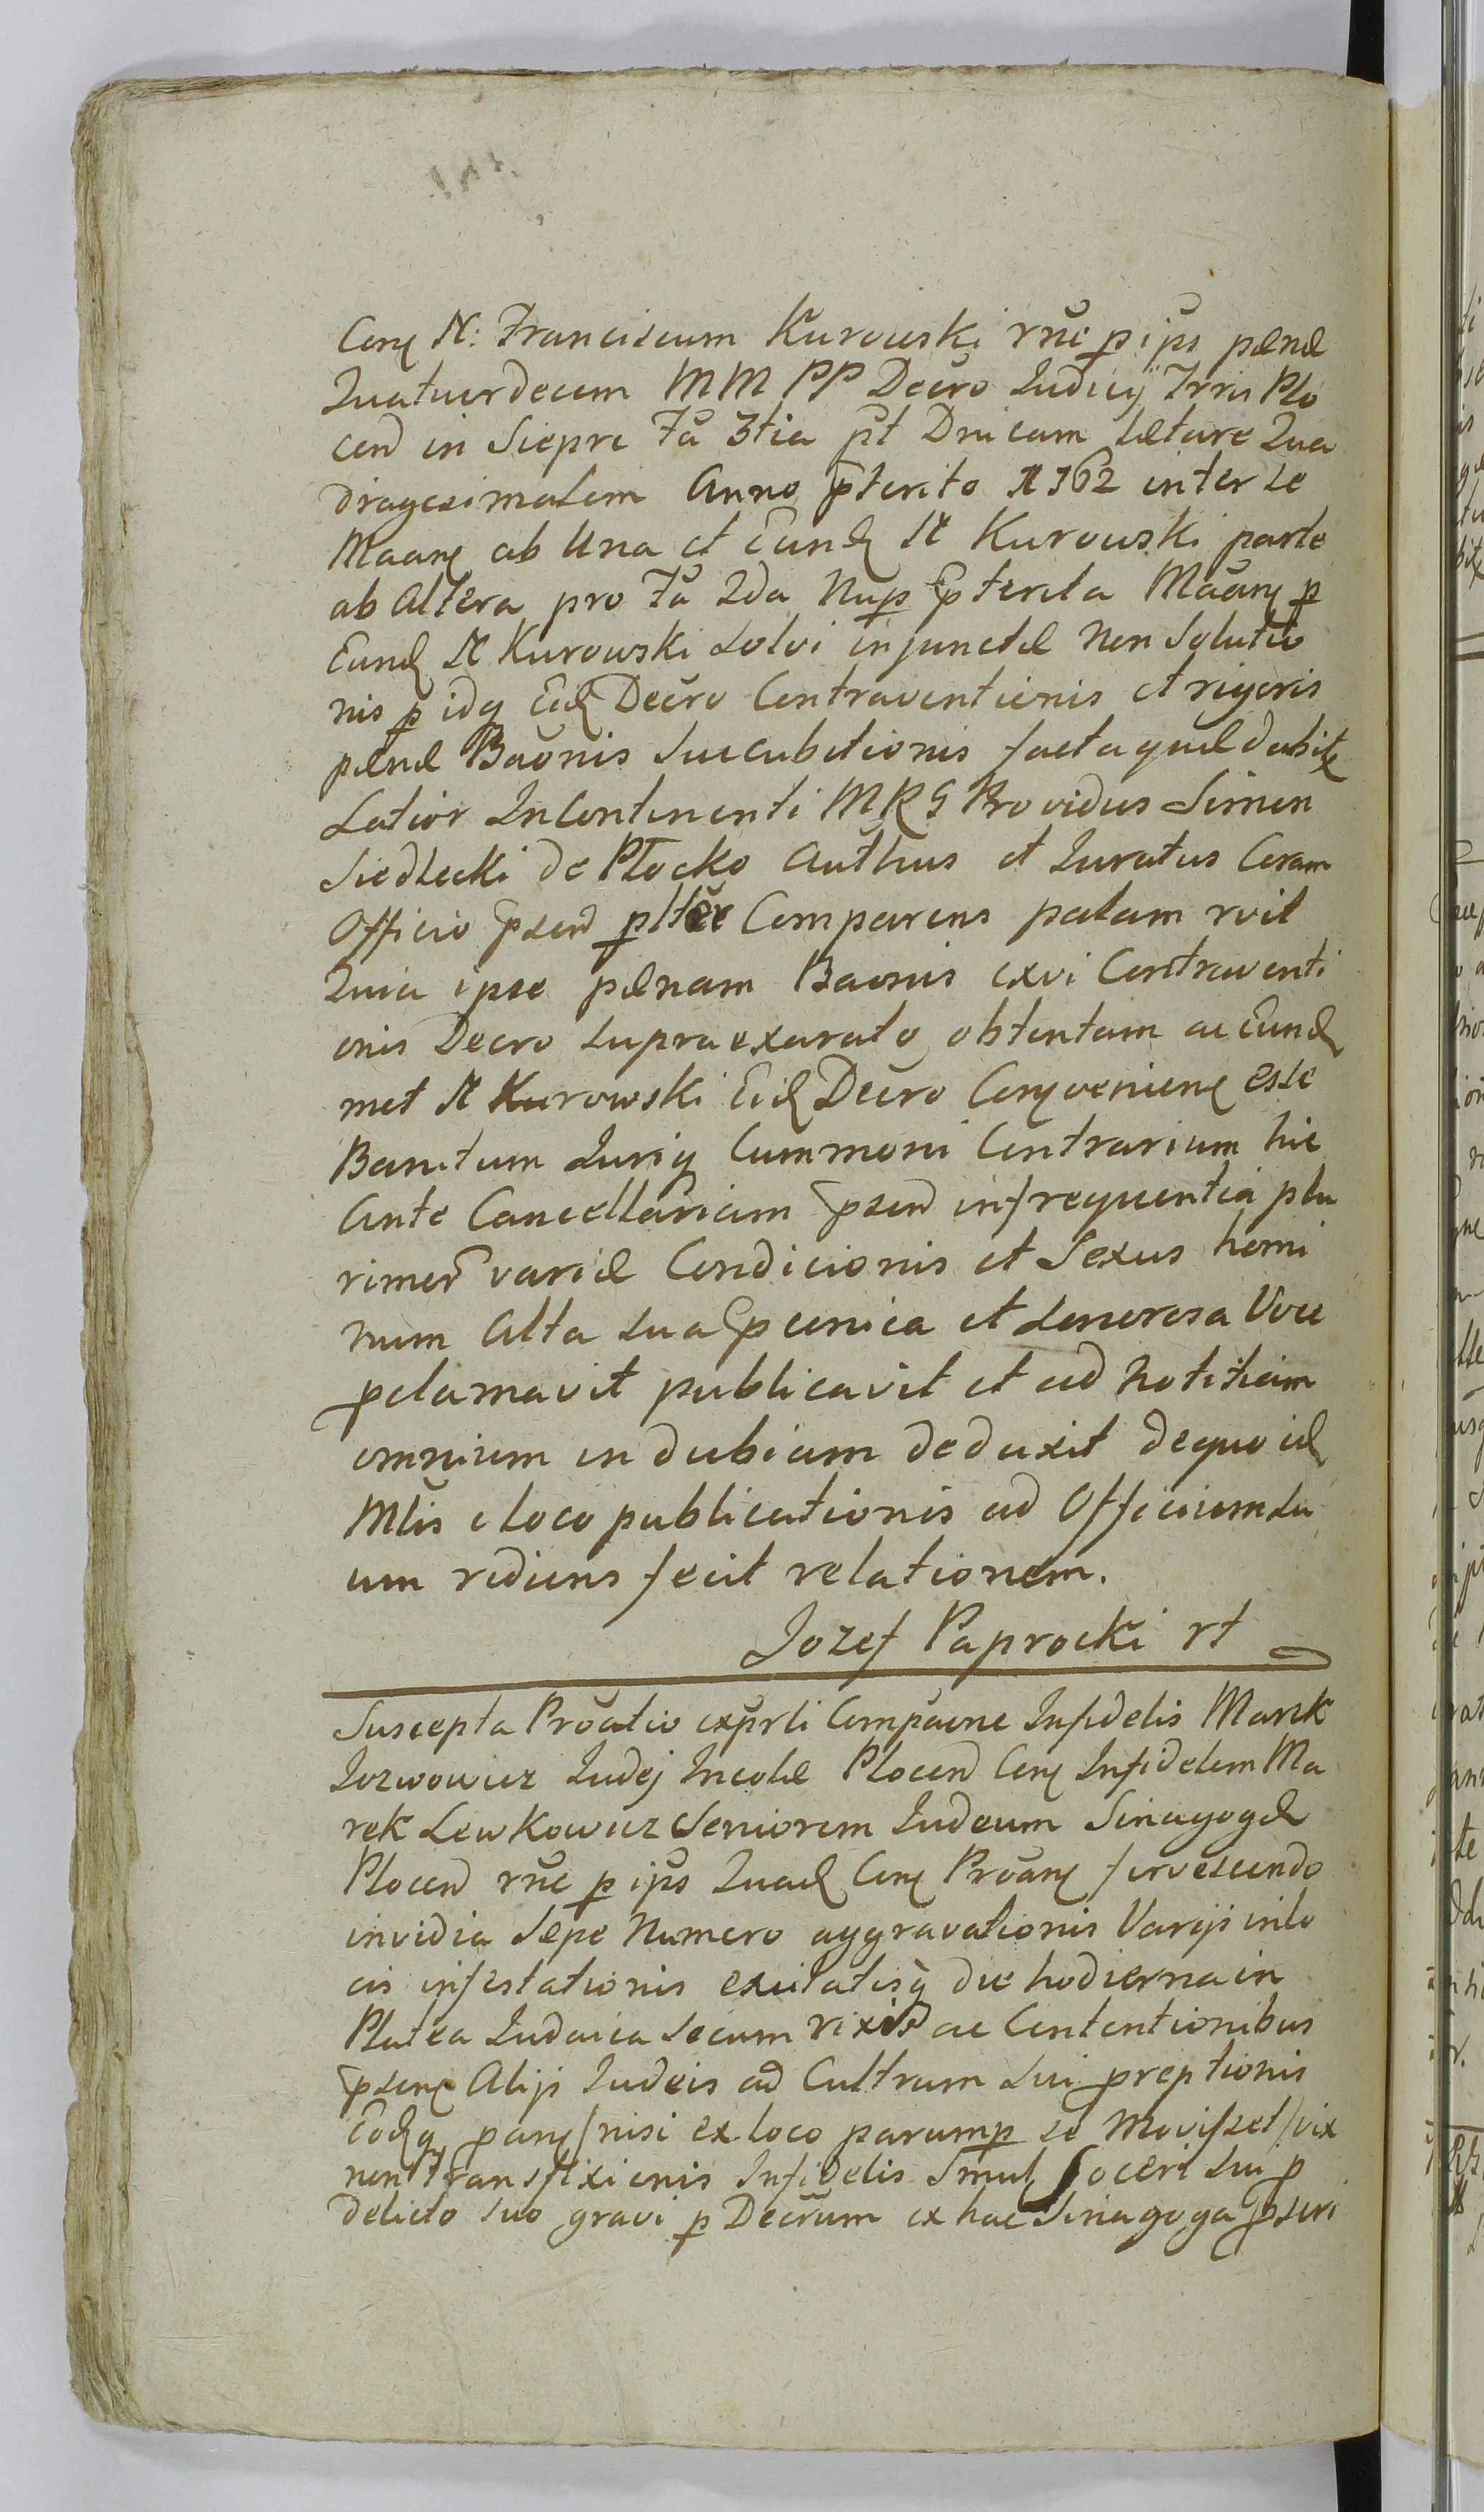 Conq N: Franciscum Kurowski rne p ips pænæ
Quatuordecem MM PP Decro Judicij Trris Plo
cen in Sieprc Fa 3tia pt Dnicam Lætare Qua
dragesimalem Anno pterito 1762 inter se
Maanq ab Una et Eund N Kurowski parte
ab Altera pro Fa 2da Nup pterita Maanq p
Eund N Kurowski solvi injunctæ non Solutio
nis p idq Eid Decro Contraventionis et rigoris
pænæ Baonis Succubitionis facta quæ dubitq
Latior In Continenti MRS Providus Simon
Siedlecki de Płocko Authus et Juratus Coram
Officio psen plter Comparens palam rvit
Quia ipse pænam Baonis exvi Contraventi
onis Decro supra exarato obtentam ac Eund
met N Kurowski Eid Decro Conqvenienq esse
Banitum Juriq Cummoni Contrarium hic
Ante Cancellariam psen in frequentia plu
rimor variæ Condicionis et Sexus homi
num Alta sua pconica et Sonorosa Voce
pclamavit publicavit et ad Notitiam
omnium indubiam deduxit dequo id
Mlis e loco publicationis ad Officium su
um rediens fecit relationem.
Jozef Paprocki rt
Suscepta Proatio exprti Compaone Infidelis Mark
Jozwowicz Judej Incolæ Plocen Conq Infidelem Ma
rek Lewkowicz Seniorem Judeum Sinagogæ
Plocen rne p ips Quad Conq Proanq fervescendo
invidia Sepe Numero aggravationis Varijs inlo
cis infestationis excitatisq die hodierna in
Platea Judaica secum rixis ac Contentionibus
psenq Alijs Judeis ad Cultrum sui preptionis
Eodq panq / nisi ex loco parump se Movisset / vix
non Transfixionis Infidelis Smul Soceri sui p
delicto suo gravi p Decrum ex hac Sinagoga pseri